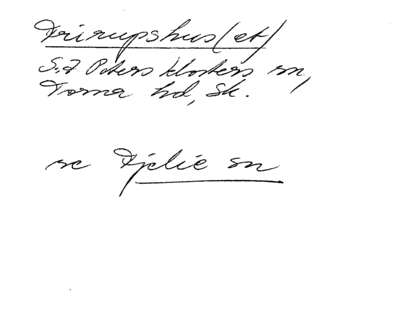 Trirupshus(et)
S:t Peters klosters sn,
Torna hd, Sk.
se Fjelie sn